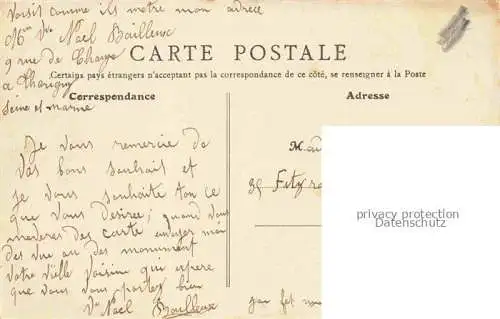 voisit comme ils metre mon adrece
Mme Vve Nael Bailleux
9 rue de
a Thorigny
Seine et marne
CARTE POSTALE
Certains pays étrangers n'acceptant pas la correspondance de ce côté, se renseigner à la Poste
Correspondance
Adresse
Je vous remercie de
vos bons souhait et
je vous souhaite ton ce
que vous desirez; quand vous
des carte envoyer moi
des vue au des monument
votre vieille voisine qui espere
que vous vous portez bien
Vve Nael Bailleux
35 Fitz
privacy protection
Datenschutz